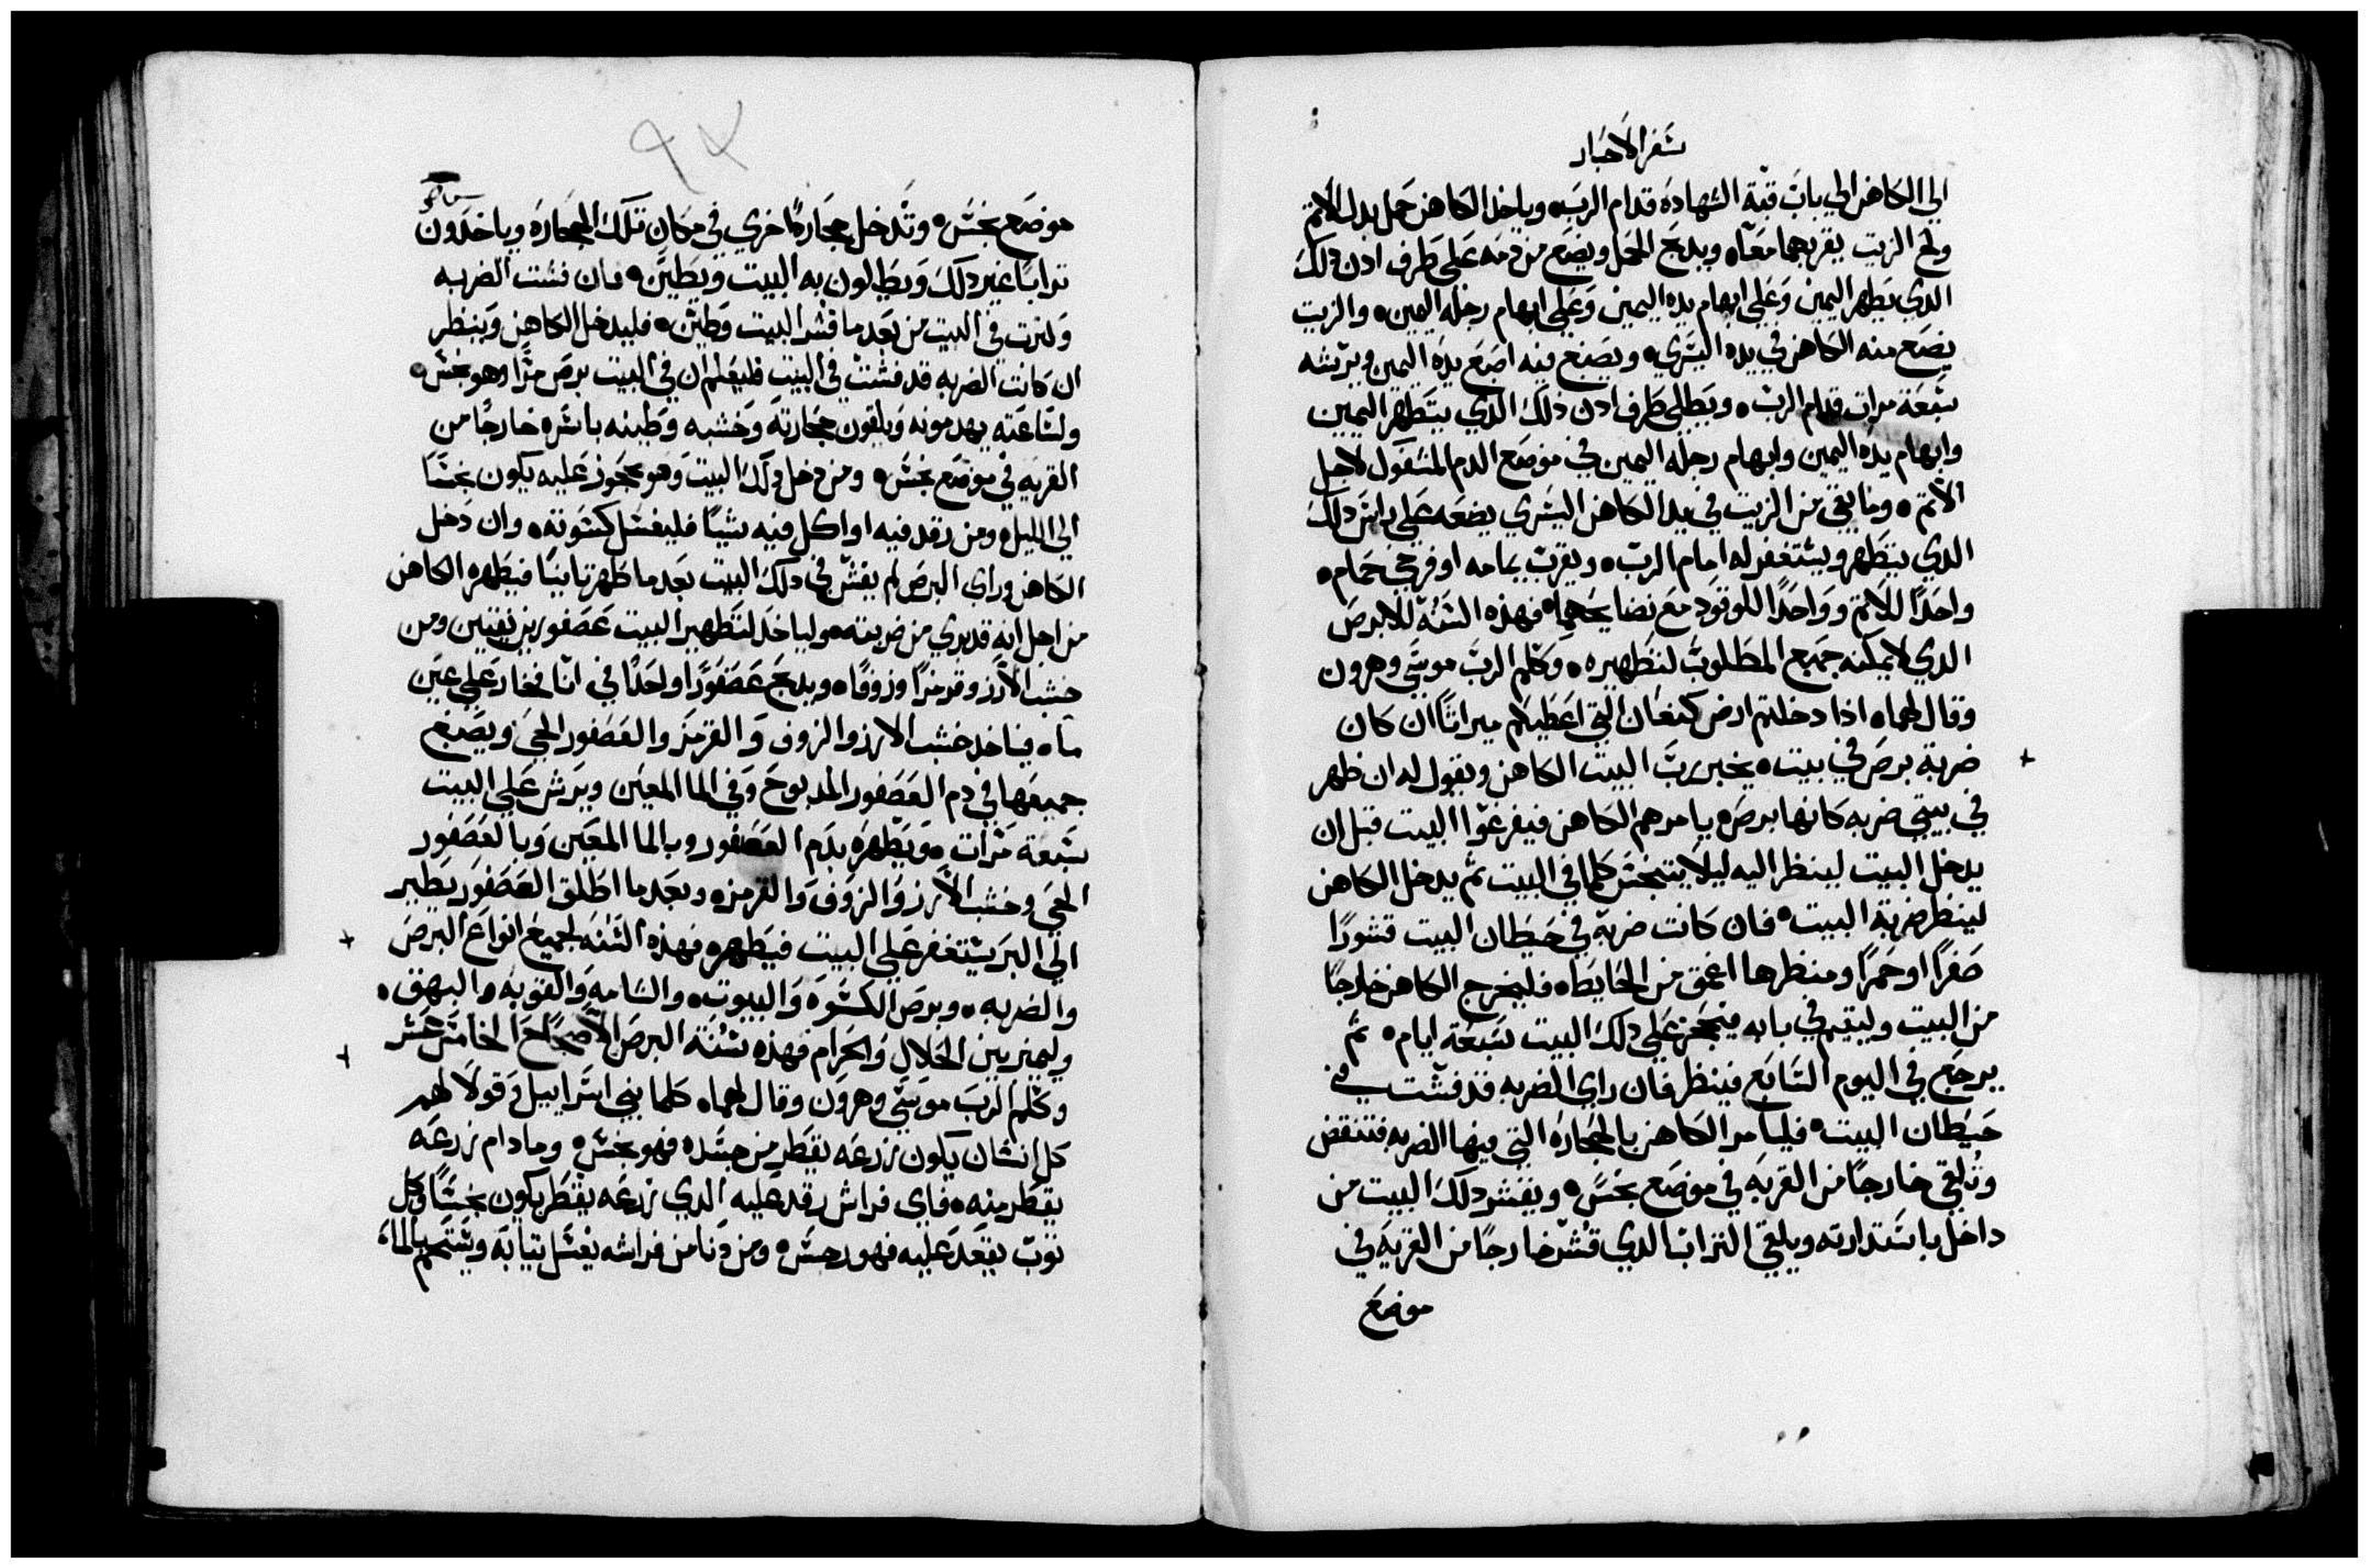 سفر الاحبار
الي الكاهن الي باب قبة الشهاده قدام الرب ٥ وياخد الكاهن حمل بدل الاتم
ولج الزيت يقربهما معاه ويدبح الحمل ويضع من دمه علي طرف ادن دلك
الدي يطهر اليمين وعلي ابهام يده اليمين وعلي ابهام رجله اليمين ٥ والزيت
يضع منه الكاهن في يده اليسري ٥ ويصبع فيه اصبع يده اليمين ويرشه
سبعة مرات قدام الرب ٥ ويطلي طرف ادن ذلك الدي يتطهر اليمين
وابهام يده اليمين وابهام رجله اليمين في موضع الدم المسفوك لاجل
الاتم ٥ وما بقي من الزيت في يد الكاهن اليسري يضعه علي راس دلك
الدي يتطهر ويستغفر له امام الرب ٥ ويقرب يمامه او فرخي حمام ٥
واحدًا للاتم وواحدًا للوقود مع نضايحهما ٥ فهذه السنه للابرص
الدي لا يمكنه جميع المطلوب لتطهيره ٥ وكلم الرب موسي وهرون
وقال لهما ٥ اذا دخلتم ارض كنعان التي اعطيكم ميراتًا ان كان
ضربة برص في بيت ٥ يخبر رب البيت الكاهن ويقول له ان ظهر
في بيتي ضربه كانها برص ٥ يامرهم الكاهن فيفرغوا البيت قبل ان
يدخل البيت لينظر اليه ليلا يتنجس كلما في البيت تم يدخل الكاهن
لينظر ضربة البيت ٥ فان كانت ضربة في حيطان البيت قشورًا
صفرًا او حمرًا ومنظرها اعمق من الحايط ٥ فليخرج الكاهن خارجًا
من البيت وليقيم في بابه فيحجز علي دلك البيت سبعة ايام ٥ تم
يرجع في اليوم السابع فينظر فان راي الضربه قد فشت في
حيطان البيت ٥ فليامر الكاهن بالحجاره التي فيها الضربه فتنقض
وتلقي خارجًا من القريه في موضع نجس ٥ ويقشر دلك البيت من
داخل باستدارته ويلقي التراب الدي قشر خارجًا من القريه في
موضع
٩٤
موضع نجس ٥ وتدخل حجارة اخري في مكان تلك الحجاره وياخدون
ترابًا غير دلك ويطلون به البيت ويطين ٥ فان فشت الضربه
وكترت في البيت من بعد ما قشر البيت وطين ٥ فليدخل الكاهن وينظر
ان كانت الضربه قد فشت في البيت فليعلم ان في البيت برص مرًا وهو نجس ٥
ولساعته يهدمونه ويلقون حجارته وخشبه وطينه باسره خارجًا من
القريه في موضع نجس ٥ ومن دخل دلك البيت وهو محجوز عليه يكون نجسًا
الي الليل ٥ ومن رقد فيه او اكل فيه شيًا فليغسل كسوته ٥ وان دخل
الكاهن وراي البرص لم يفش في دلك البيت بعد ما طهر تانيًا فيطهره الكاهن
من اجل انه قد بري من ضربته ٥ ولياخد لتطهير البيت عصفورين نقيين ومن
خشب الارز وقرمزًا وزوفا ٥ ويدبح عصفورًا واحدًا في انا فخار علي عين
ما ٥ فياخد خشب الارز والزوف والقرمز والعصفور الحي ويصبغ
جميعها في دم العصفور المدبوح وفي الما المعين ويرش علي البيت
سبعة مرات ٥ ويطهره بدم العصفور وبالما المعين وبالعصفور
الحي وخشب الارز والزوف والقرمز ٥ وبعد ما اطلق العصفور يطير
الي البر يستغفر علي البيت فيطهره فهذه السنه لجميع انواع البرص
والضربه ٥ وبرص الكسوه والبيوت ٥ والشامه والقوبه والبهق ٥
وليميز بين الحلال والحرام فهذه سنة البرص الاصحاح الخامس عشر
وكلم الرب موسي وهرون وقال لهما ٥ كلما بني اسراييل وقولا لهم
كل انسان يكون زرعه يقطر من جسده فهو نجس ٥ وما دام زرعه
يقطر منه ٥ فاي فراش رقد عليه الدي زرعه يقطر يكون نجسًا وكل
توب يقعد عليه فهو رجس ٥ ومن دنا من فراشه يغسل تيابه ويستحم بالماء